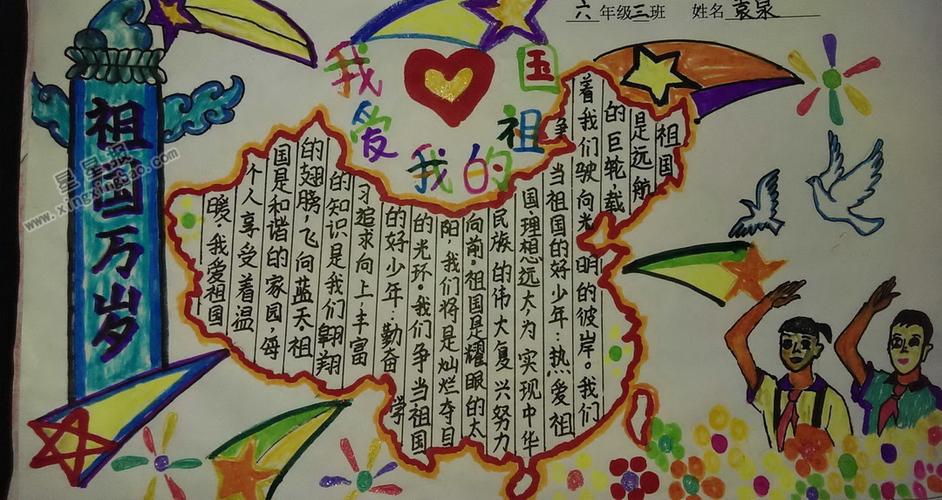 六年级三班 姓名 袁泉
我爱我的祖国
祖国万岁
祖国
是远航
的巨轮,载
着我们驶向光明的彼岸。我们
争当祖国的好少年:热爱祖
国理想远大,为实现中华
民族的伟大复兴努力
向前。祖国是耀眼的太
阳,我们将是灿烂夺目
的光环。我们争当祖国
的好少年:勤奋学
习追求向上丰富
的知识是我们翱翔
的翅膀,飞向蓝天。祖
国是和谐的家园,每
个人享受着温
暖,我爱祖国
星星报
www.xingxingbao.com